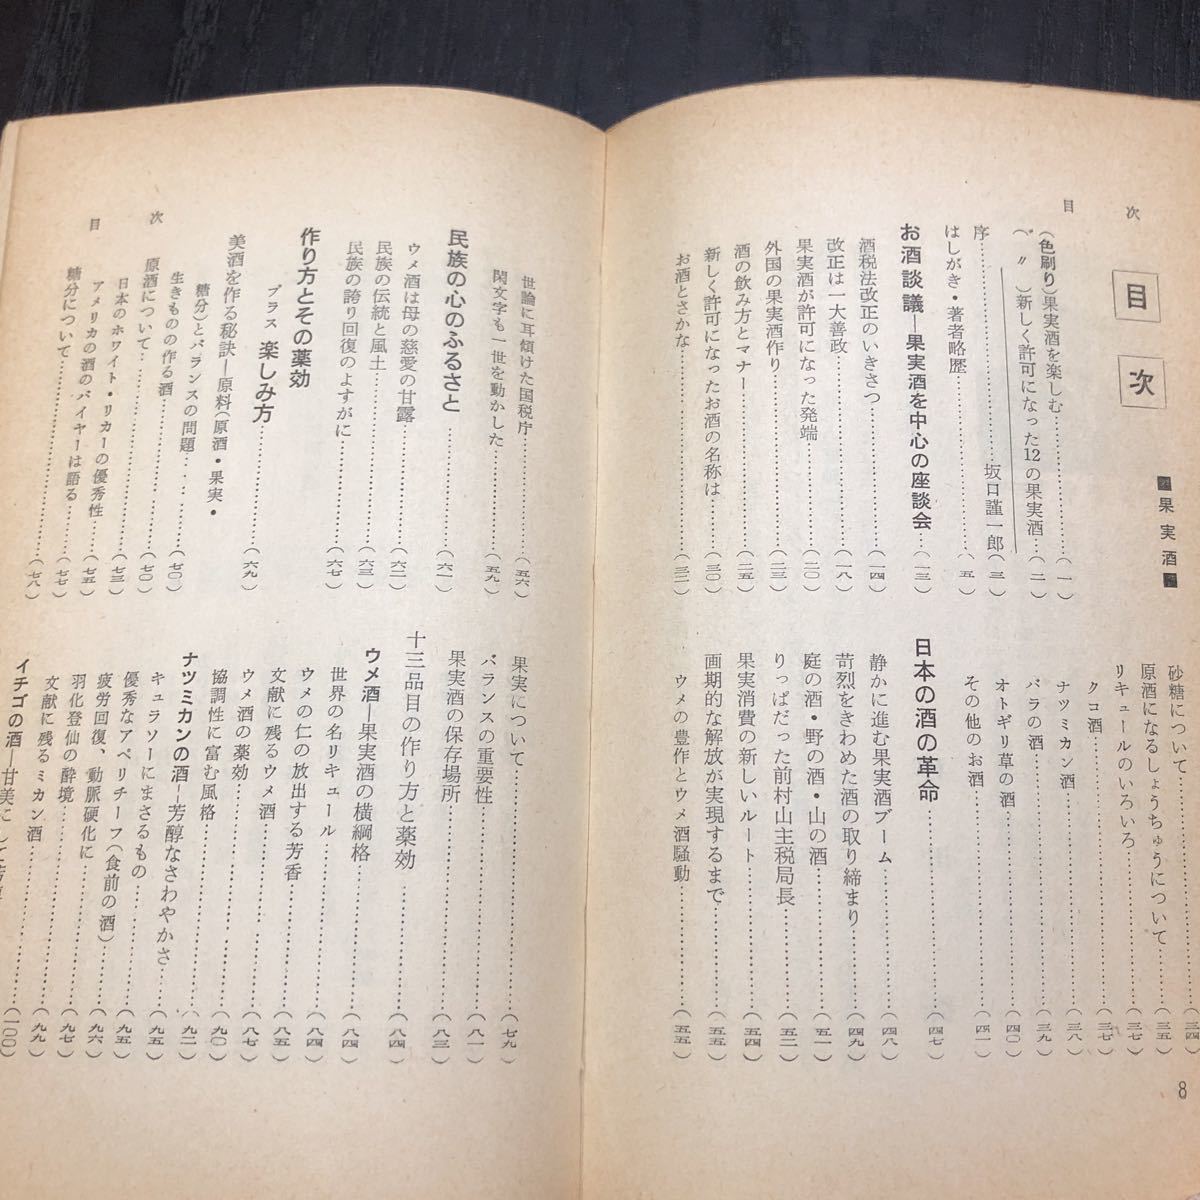 目次
■果実酒■
(色刷り)果実酒を楽しむ……(一)
(〃)新しく許可になった12の果実酒…(二)
序……坂口謹一郎(三)
はしがき・著者略歴……(五)
お酒談議―果実酒を中心の座談会…(一三)
酒税法改正のいきさつ……(一四)
改正は一大善政……(一八)
果実酒が許可になった発端……(二〇)
外国の果実酒作り……(二三)
酒の飲み方とマナー……(二五)
新しく許可になったお酒の名称は……(三〇)
お酒とさかな……(三二)
砂糖について……(三四)
原酒になるしょうちゅうについて……(三五)
リキュールのいろいろ……(三七)
クコ酒……(三七)
ナツミカン酒……(三八)
バラの酒……(三九)
オトギリ草の酒……(四〇)
その他のお酒……(四一)
日本の酒の革命……(四七)
静かに進む果実酒ブーム……(四八)
苛烈をきわめた酒の取り締まり……(四九)
庭の酒・野の酒・山の酒……(五一)
りっぱだった前村山主税局長……(五二)
果実消費の新しいルート……(五四)
画期的な解放が実現するまで……(五五)
ウメの豊作とウメ酒騒動……(五五)
目次
8
世論に耳傾けた国税庁……(五六)
閑文字も一世を動かした……(五九)
民族の心のふるさと……(六一)
ウメ酒は母の慈愛の甘露……(六二)
民族の伝統と風土……(六三)
民族の誇り回復のよすがに……(六七)
作り方とその薬効
プラス 楽しみ方……(六九)
美酒を作る秘訣―原料(原酒・果実・
糖分)とバランスの問題……(七〇)
生きもの作る酒……(七〇)
原酒について……(七〇)
日本のホワイト・リカーの優秀性……(七三)
アメリカの酒のバイヤーは語る……(七五)
糖分について……(七八)
果実について……(七九)
バランスの重要性……(八一)
果実酒の保存場所……(八三)
十三品目の作り方と薬効……(八四)
ウメ酒―果実酒の横綱格……(八四)
世界の名リキュール……(八四)
ウメの仁の放出する芳香……(八四)
文献に残るウメ酒……(八五)
ウメ酒の薬効……(八七)
協調性に富む風格……(九〇)
ナツミカンの酒―芳醇なさわやかさ……(九二)
キュラソーにまさるもの……(九五)
優秀なアペリチーフ(食前の酒)……(九五)
疲労回復、動脈硬化に……(九六)
羽化登仙の酔境……(九七)
文献に残るミカン酒……(九九)
イチゴの酒―甘美にして……(一〇〇)
目次